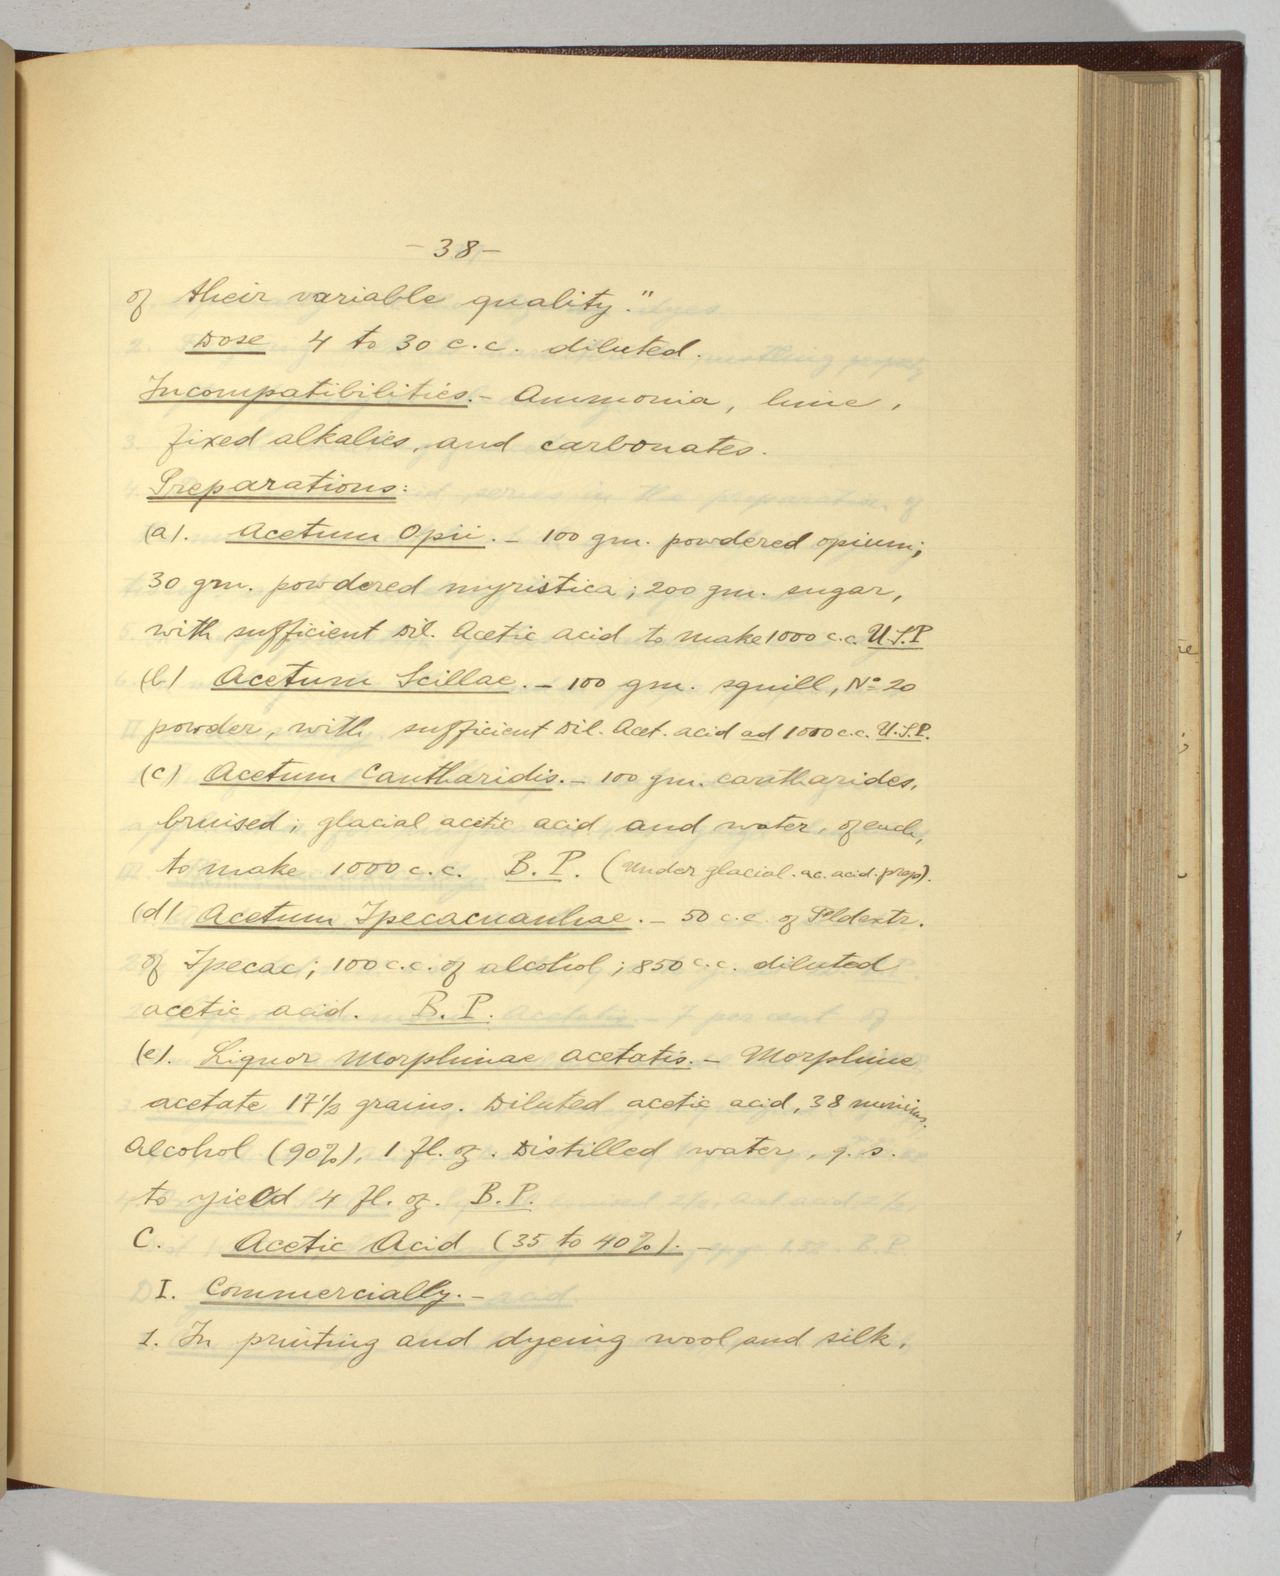 -38-
of their variable quality."
Dose 4 to 30 c.c. diluted.
Incompatibilities.- Ammonia, lime,
fixed alkalies, and carbonates.
Preparations:
(a). Acetum Opii. - 100 gm. powdered opium;
30 gm. powdered myristica; 200 gm. sugar,
with sufficient Dil. Acetic acid to make 1000 c.c. U.S.P
(b) Acetum Scillae. - 100 gm. squill, No 20
powder, with sufficient Dil. Acet. acid ad 1000 c.c. U.S.P.
(c) Acetum Cantharidis. - 100 gm. cantharides,
bruised; glacial acetic acid and water, of each,
to make 1000 c.c. B.P. (Under glacial. ac. acid. prep).
(d) Acetum Ipecacuanhae. - 50 c.c. of Fldextr.
of Ipecac; 100 c.c. of alcohol; 850 c.c. diluted
acetic acid. B.P.
(e). Liquor Morphinae Acetatis. - Morphine
acetate 17½ grains. Diluted acetic acid, 38 minims.
Alcohol (90%), 1 fl. oz. Distilled water, q.s.
to yield 4 fl. oz. B.P.
C. Acetic Acid (35 to 40%). -
I. Commercially. -
1. In printing and dyeing wool and silk.